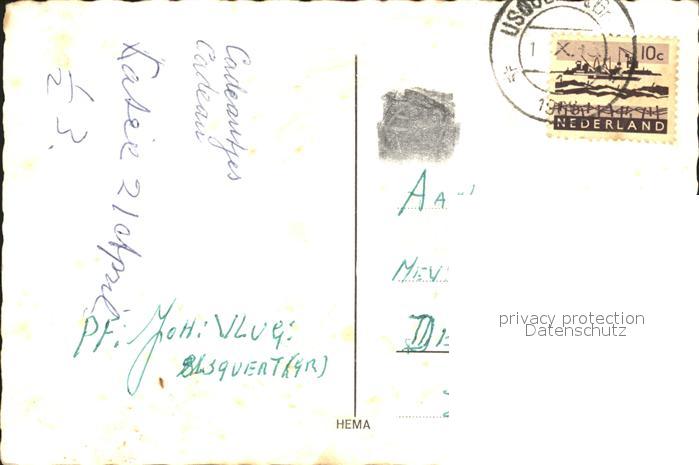 Cadeautjes
Cadeau
Katie 21 april
£ 3.
PF: Joh: VLUG:
USQUERT (GR)
AA
MEV
HEMA
10c
NEDERLAND
privacy protection
Datenschutz